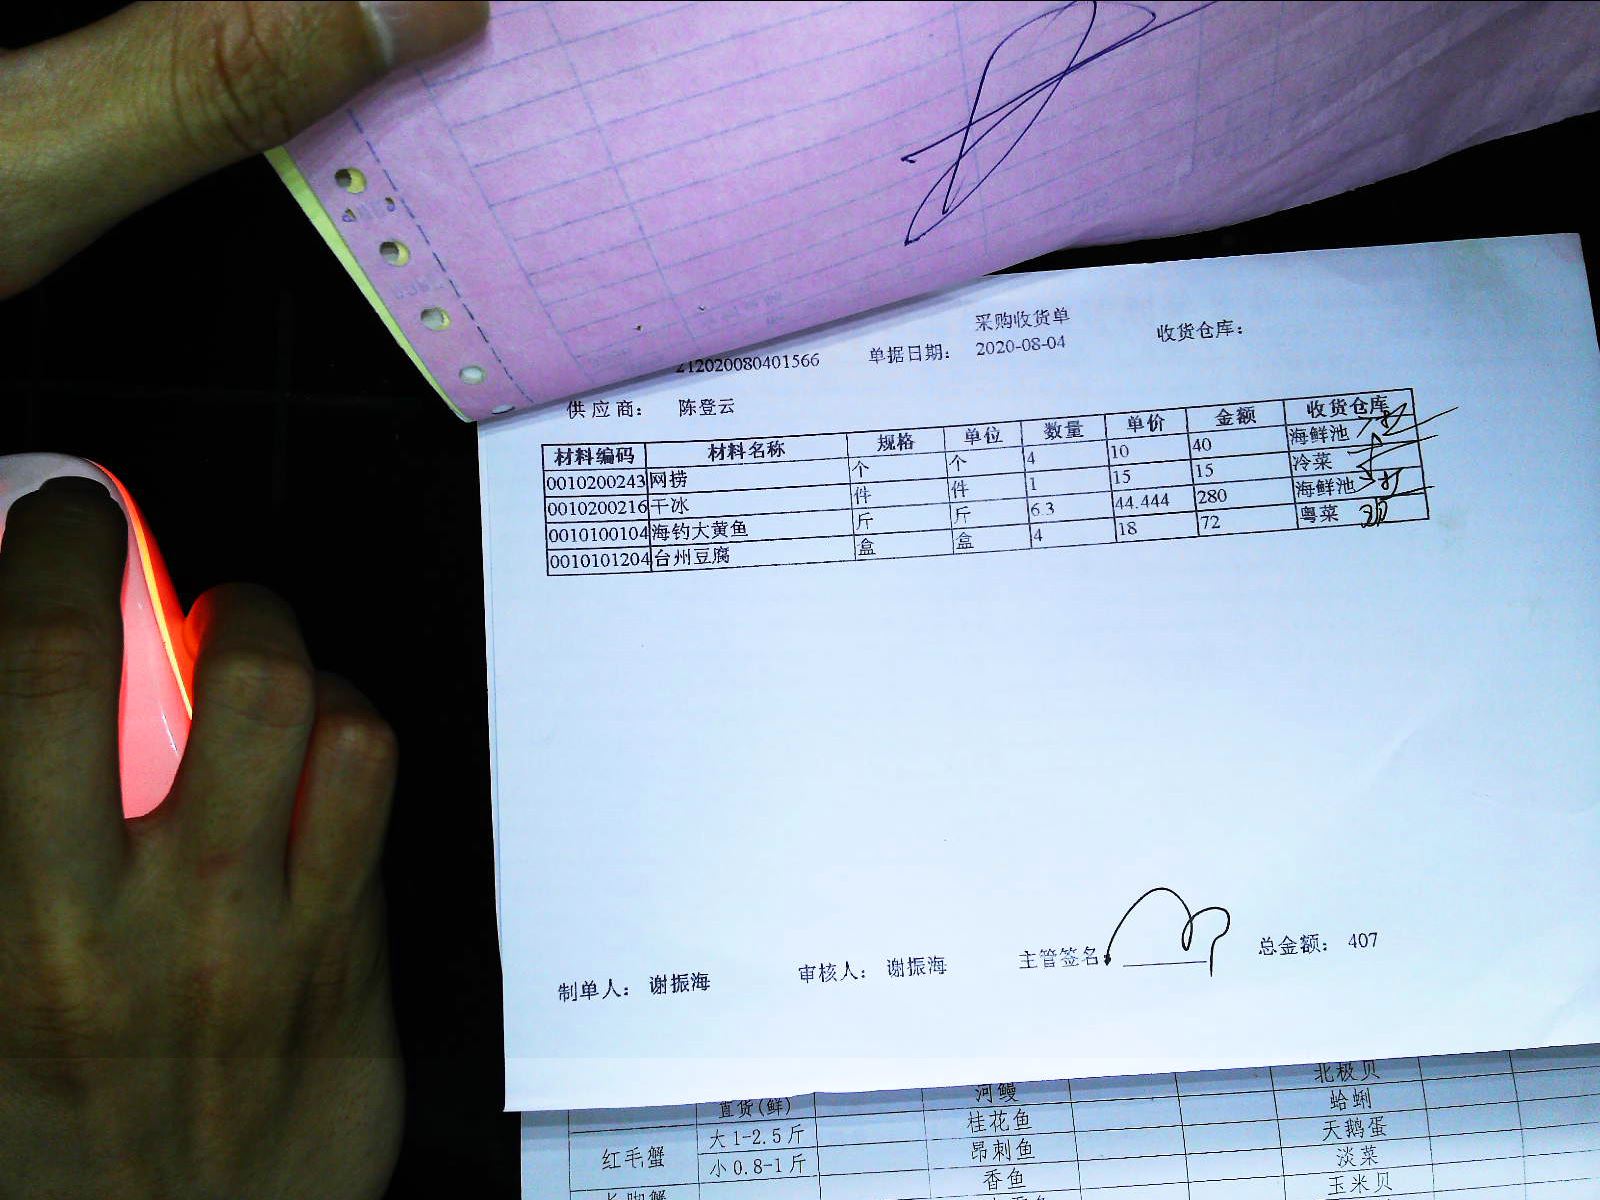 采购收货单
212020080401566 单据日期： 2020-08-04 收货仓库：
供应商： 陈登云
材料编码 材料名称 规格 单位 数量 单价 金额 收货仓库
0010200243 网捞 个 个 4 10 40 海鲜池
0010200216 干冰 件 件 1 15 15 冷菜
0010100104 海钓大黄鱼 斤 斤 6.3 44.444 280 海鲜池
0010101204 台州豆腐 盒 盒 4 18 72 粤菜
制单人： 谢振海 审核人： 谢振海 主管签名： 总金额： 407
直货(鲜) 河鳗 北极贝
红毛蟹 大1-2.5斤 桂花鱼 蛤蜊
小0.8-1斤 昂刺鱼 天鹅蛋
香鱼 淡菜
玉米贝